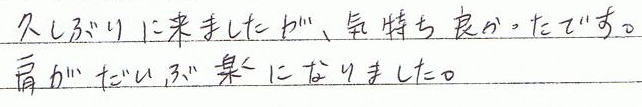 久しぶりに来ましたが、気持ち良かったです。
肩がだいぶ楽になりました。